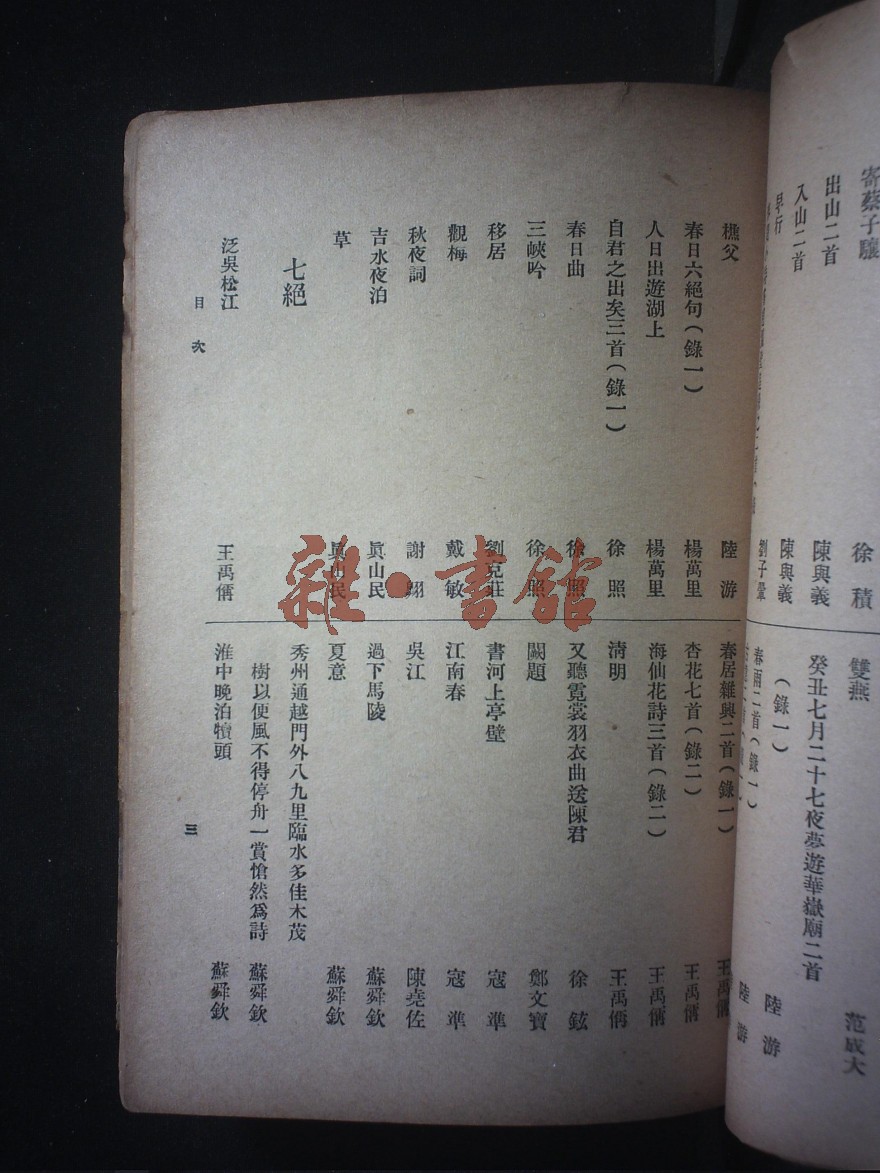 寄蔡子驤
出山二首
入山二首
早行
徐積
陳與義
陳與義
劉子翬
雙燕
癸丑七月二十七夜夢遊華嶽廟二首
(錄一)
春雨二首(錄一)
范成大
陸游
陸游
樵父 陸游
春日六絕句(錄一) 楊萬里
人日出遊湖上 楊萬里
自君之出矣三首(錄一) 徐照
春日曲 徐照
三峽吟 徐照
移居 劉克莊
觀梅 戴敏
秋夜詞 謝翱
吉水夜泊 眞山民
草 眞山民
七絕
泛吳松江 王禹偁
春居雜興二首(錄一) 王禹偁
杏花七首(錄二) 王禹偁
海仙花詩三首(錄二) 王禹偁
淸明 王禹偁
又聽霓裳羽衣曲送陳君 徐鉉
闕題 鄭文寶
書河上亭壁 寇準
江南春 寇準
吳江 陳堯佐
過下馬陵 蘇舜欽
夏意 蘇舜欽
秀州通越門外八九里臨水多佳木茂
樹以便風不得停舟一賞愴然爲詩 蘇舜欽
淮中晚泊犢頭 蘇舜欽
目次
三
雜·書館